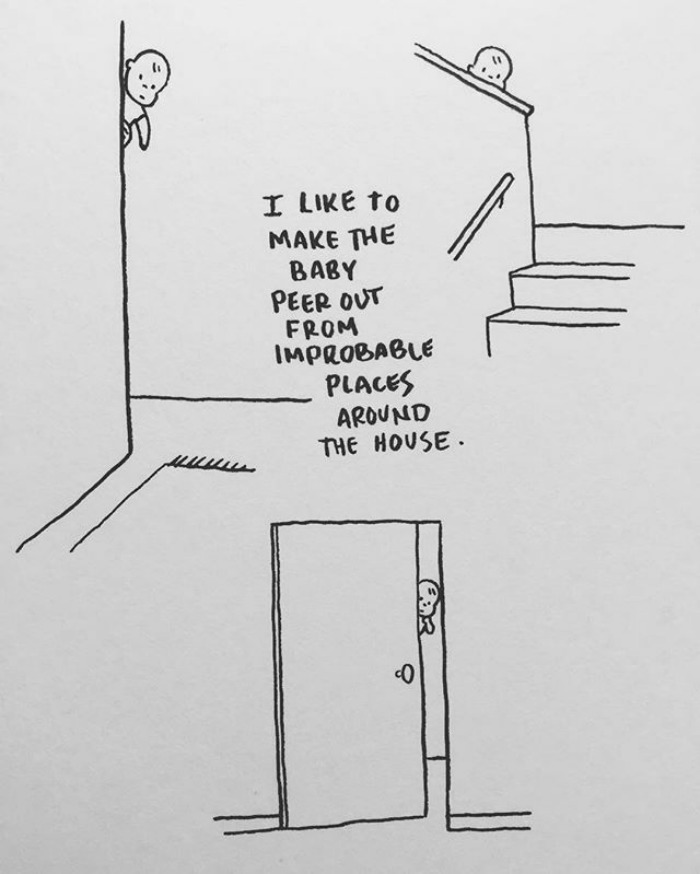 I LIKE TO
MAKE THE
BABY
PEER OUT
FROM
IMPROBABLE
PLACES
AROUND
THE HOUSE.